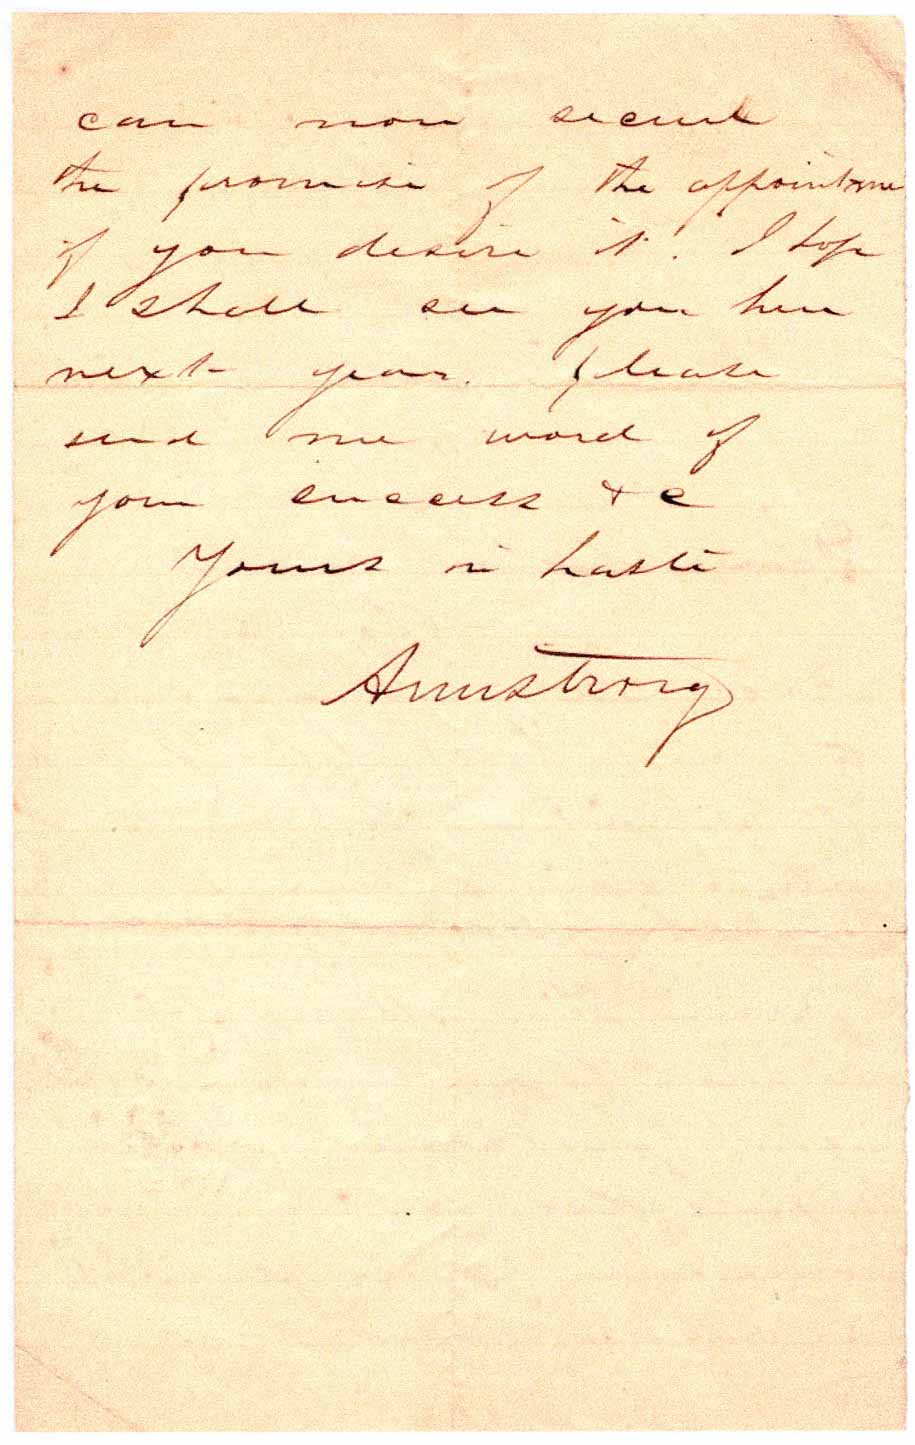 can now secure
the promise of the appointme
if you desire it. I hope
I shall see you here
next year. please
send me word of
your success & c
Yours in haste
Armstrong